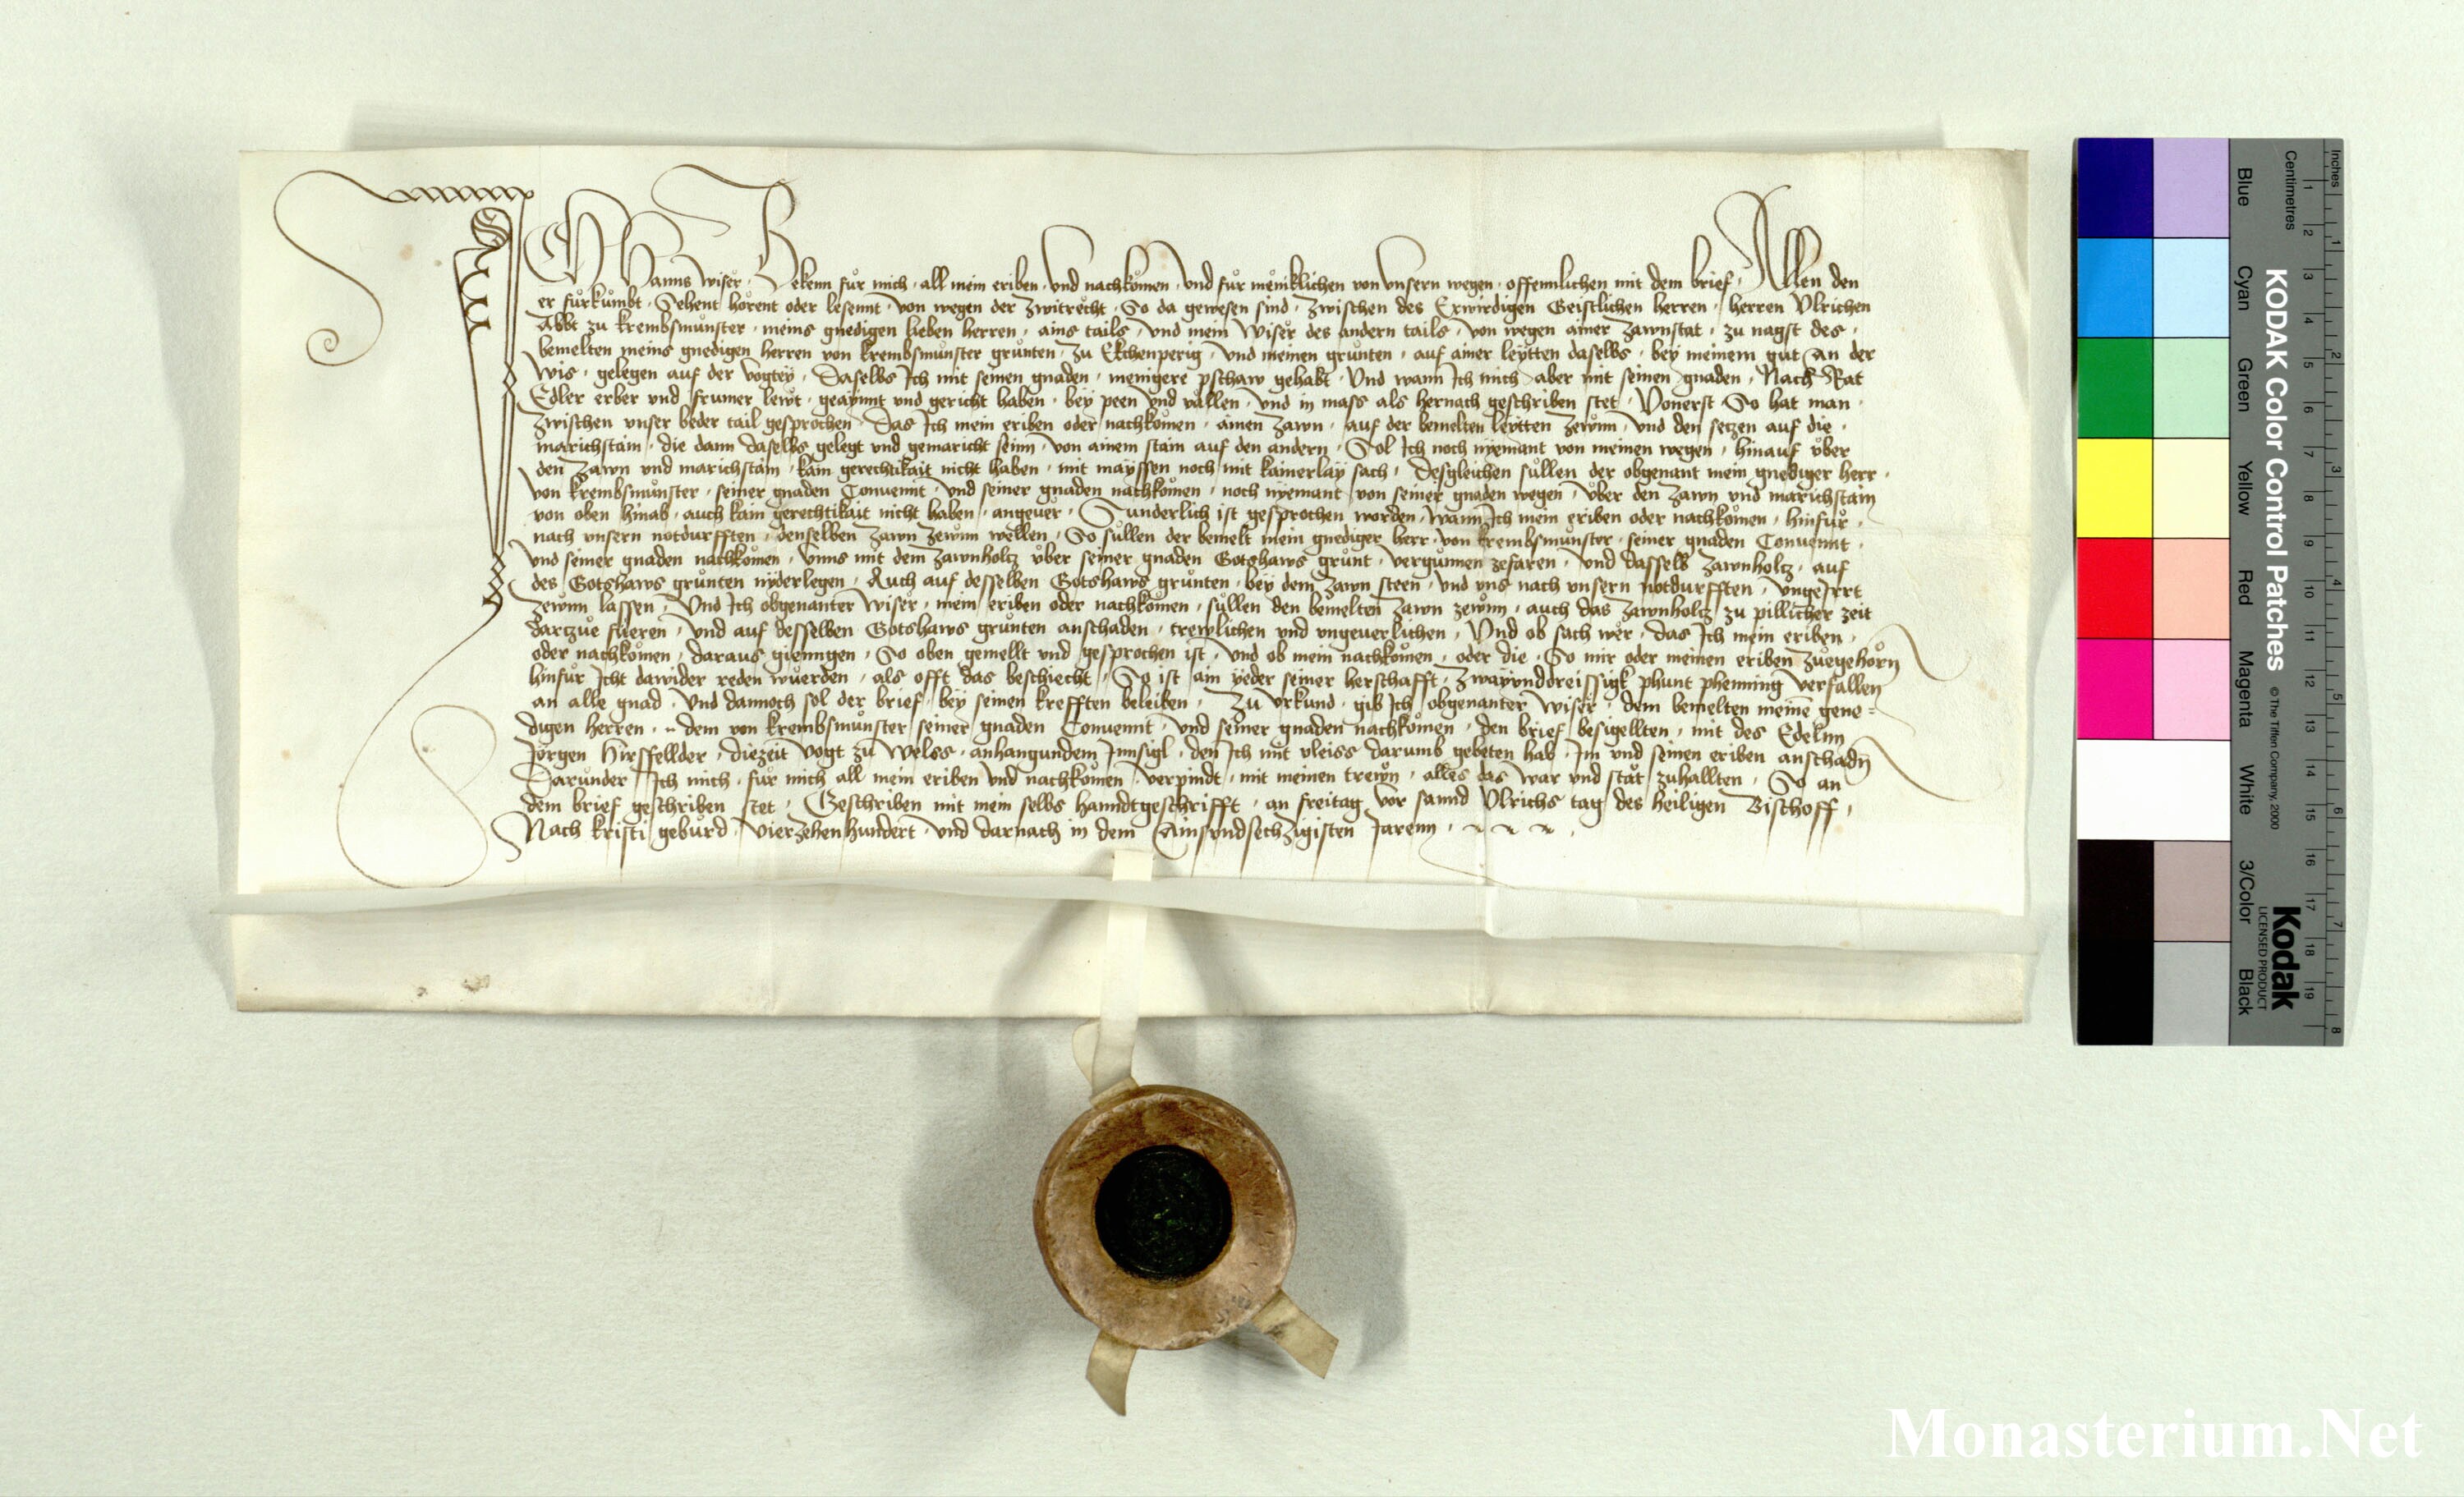 Ich Hanns Wiser · Bekenn für mich · all mein eriben · und nachkomen · und für meniklichen von unsern wegen · offennlichen mit dem brief · Allen den
er fürkumbt · Sehent hörent oder lesennt · von wegen der zwitrecht · So da gewesen sind · zwischen des Erwirdigen Geistlichen herren · herren Ulrichen
Abbt zu krembsmünster · meins gnedigen lieben herren · ains tails · und mein Wiser des andern tails · von wegen ainer zawnstat · zu nagst des ·
bemelten meins gnedigen herren von krembsmünster grünten · zu Ekchenperig · und meinen grünten · auf ainer leytten daselbs · bey meinem gut An der
Wis · gelegen auf der vogtey · Daselbs Ich mit seinen gnaden · menigere pschaw gehabt · Und wann Ich mich aber mit seinen gnaden · Nach Rat
Edler erber und frumer lewt · geaynnt und gericht haben · bey peen und vällen · und in mass als hernach geschriben stet · Vonerst So hat man ·
zwischen unser beder tail gesprochen · Das Ich mein eriben oder nachkomen · ainen zawn · auf der bemelten leytten zewnn · und den setzen auf die ·
marichstain · die dann daselbs gelegt und gemaricht seinn · von ainem stain auf den andern · Sol Ich noch nyemant von meinen wegen · hinauf über
den zawn und marichstain · kain gerechtikait nicht haben · mit mayssen noch mit kainerlay sach · Desgleichen süllen der obgenant mein gnediger herr ·
von krembsmünster · seiner gnaden Convennt · und seiner gnaden nachkomen · noch nyemant von seiner gnaden wegen · über den zawn und marichstain
von oben hinab · auch kain gerechtikait nicht haben · angever · Sunderlich ist gesprochen worden · Wann Ich mein eriben oder nachkomen · hinfür ·
nach unsern notdurfften · denselben zawn zewnn wellen · So süllen der bemelt mein gnediger herr · von krembsmünster · seiner gnaden Convennt ·
und seiner gnaden nachkomen · unns mit dem zawnholtz über seiner gnaden Gotshaws grünt · vergünnen zefaren · und dasselb zawnholtz · auf
des Gotshaws grünten nyderlegen · Auch auf desselben Gotshaws grünten · bey dem zawn steen · und uns nach unsern notdurfften · ungeIrrt
zewnn lassen · Und Ich obgenanter Wiser · mein eriben oder nachkomen · süllen den bemelten zawn zewnn · auch das zawnholtz zu pillicher zeit
dartzue füeren · und auf desselben Gotshaws grünten anschaden · trewlichen und ungeverlichen · Und ob sach wer · das Ich mein eriben ·
oder nachkomen · daraus gienngen · So oben gemellt und gesprochen ist · und ob mein nachkomen · oder die · So mir oder meinen eriben zuegehorn
hinfür Icht dawider reden würden · als offt das beschiecht · So ist ain yeder seiner herschafft · zwayunddreissigk phunt phenning verfallen
an alle gnad · Und dannoch sol der brief · bey seinen krefften beleiben · Zu Urkund · gib Ich obgenanter Wiser · dem bemelten meinē gene=
digen herren · dem von krembsmünster seiner gnaden Convennt · und seiner gnaden nachkomen · den brief besigellten · mit des Edelnn
Jorgen Hirsfellder · diezeit vogt zu Welss · anhangundem Innsigl · den Ich mit vleiss darumb gebeten hab · Im und seinen eriben anschadn
Darunder Ich mich · für mich all mein eriben und nachkomen · verpindt · mit meinen trewn · alles das war und stät zuhallten · So an
dem brief geschriben stet · Geschriben mit mein selbs hanndtgeschrifft · an freitag vor sannd Ulrichs tag des heiligen Bischoff ·
Nach kristi gebürd · vierzehenhundert · und darnach in dem Ainsundsechzigisten Jarenn ·
Inches
Centimetres
KODAK Color Control Patches
© The Tiffen Company, 2000
Kodak
LICENSED PRODUCT
Blue
Cyan
Green
Yellow
Red
Magenta
White
3/Color
Black
1 2 3 4 5 6 7 8 9 10 11 12 13 14 15 16 17 18 19
1 2 3 4 5 6 7 8
Monasterium.Net